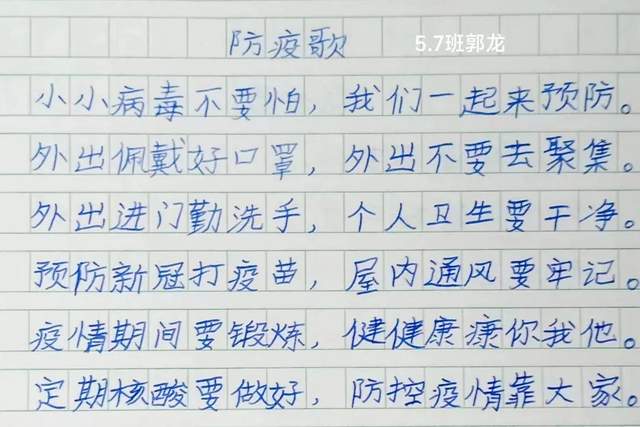 防疫歌 5.7班郭龙
小小病毒不要怕，我们一起来预防。
外出佩戴好口罩，外出不要去聚集。
外出进门勤洗手，个人卫生要干净。
预防新冠打疫苗，屋内通风要牢记。
疫情期间要锻炼，健健康康你我他。
定期核酸要做好，防控疫情靠大家。